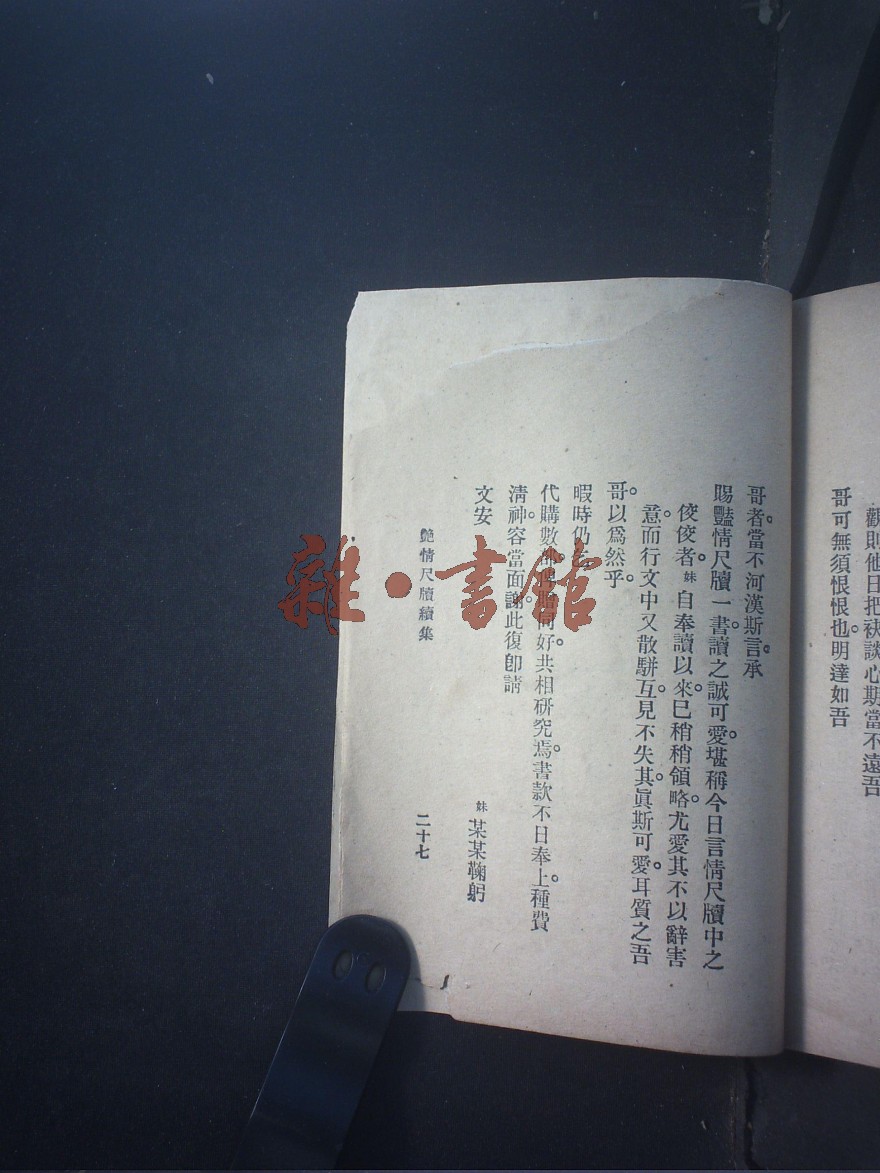 觀則他日把袂談心期當不遠吾
哥可無須恨恨也。明達如吾
哥者。當不河漢斯言。承
賜豔情尺牘一書。讀之誠可愛。堪稱今日言情尺牘中之
佼佼者。妹自奉讀以來。已稍稍領略。尤愛其不以辭害
意。而行文中又散駢互見。不失其眞。斯可愛耳。質之吾
哥。以爲然乎。
暇時仍
代購數 同好。共相研究焉。書款不日奉上。種費
淸神。容當面謝。此復卽請
文安
妹某某鞠躬
艷情尺牘續集
二十七
雜·書館